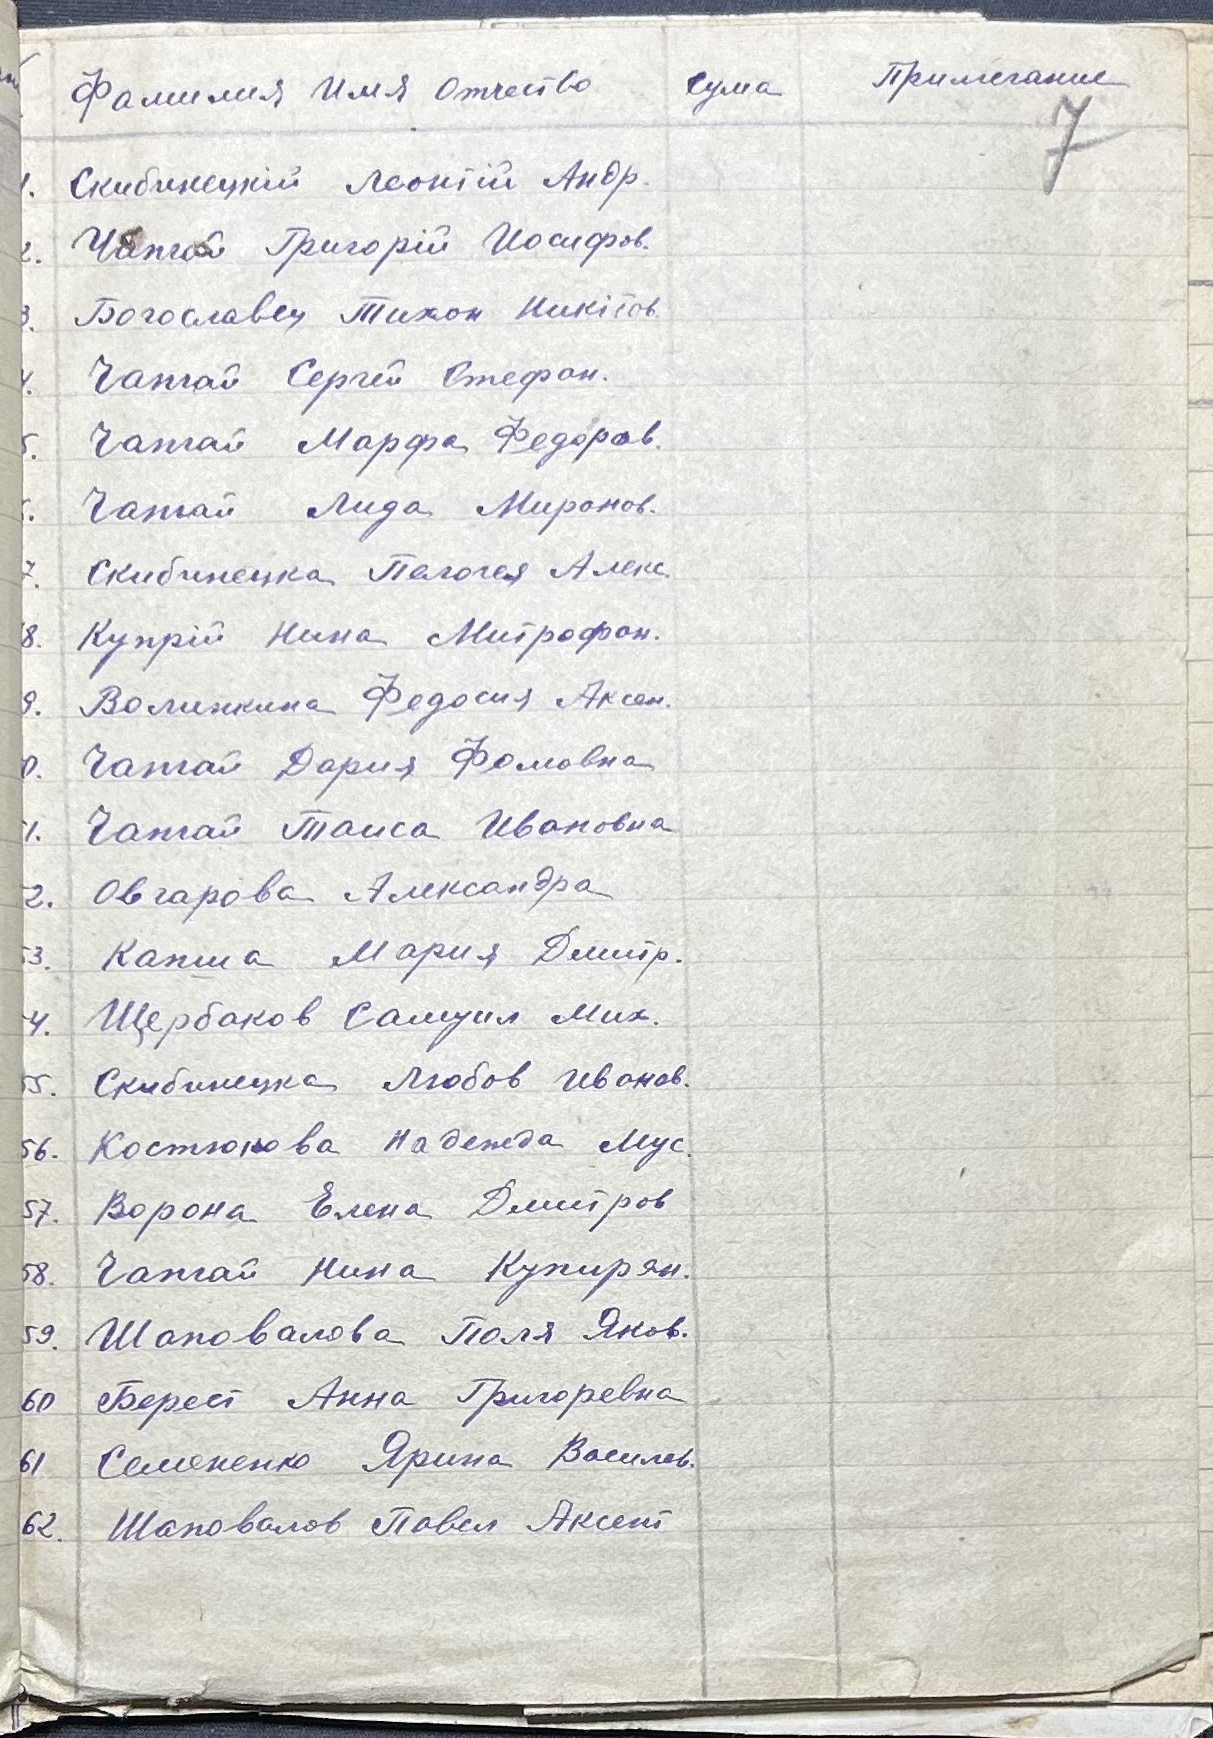 Фамилия Имя Отчество сума Примечание
7
1. Скибинецкій Леонтій Андр.
2. Чапчай Григорій Иосифов.
3. Богославец Тихон Никітов.
4. Чапчай Сергей Стефан.
5. Чапчай Марфа Федоров.
6. Чапчай Лида Миронов.
7. Скибинецка Пелагея Алекс.
8. Купрій Нина Митрофан.
9. Волинкина Федосия Аксен.
0. Чапчай Дария Фомовна
51. Чапчай Таиса Ивановна
52. Овчарова Александра
53. Капша Мария Дмитр.
54. Щербаков Самуил Мих.
55. Скибинецка Любов Иванов.
56. Костюкова Надежда Мус.
57. Ворона Елена Дмитров
58. Чапчай Нина Купирян.
59. Шаповалова Поля Яков.
60 Берест Анна Григоревна
61 Семененко Ярина Василев.
62. Шаповалов Павел Аксент